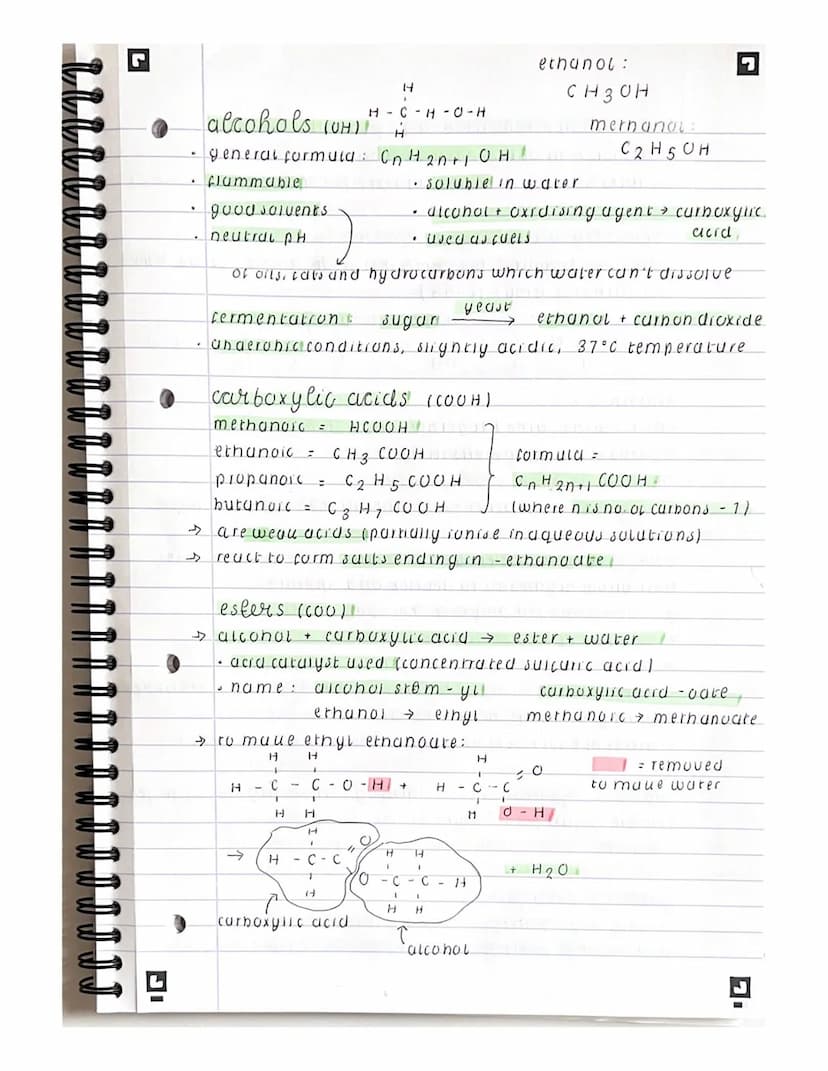 ethanol :
CH3OH
methanol :
C2H5OH
H
H - C - H - O - H
H
alcohols (OH)
· general formula : CnH2n+1 OH
· flammable
· soluble in water
· good solvents
· alcohol + oxidising agent → carboxylic acid
· neutral pH
· used as fuels
of oils, fats and hydrocarbons which water can't dissolve
fermentation : sugar yeast → ethanol + carbon dioxide
· anaerobic conditions, slightly acidic, 37°C temperature
carboxylic acids (COOH)
methanoic = HCOOH
ethanoic = CH3 COOH
propanoic = C2 H5 COOH
butanoic = C3 H7 COOH
formula =
CnH2n+1 COOH
(where n is no. of carbons - 1)
→ are weak acids (partially ionise in aqueous solutions)
→ react to form salts ending in - ethanoate
esters (COO)
→ alcohol + carboxylic acid → ester + water
· acid catalyst used (concentrated sulfuric acid)
· name : alcohol stem - yl carboxylic acid - oate
ethanol → ethyl methanoic → methanoate
→ to make ethyl ethanoate :
H H
H - C - C - O - H +
H H
H
H - C - C = O
H O - H
= removed
to make water
→
H
H - C - C = O
H
O - C - C - H
H H
H H
+ H2O
carboxylic acid
alcohol